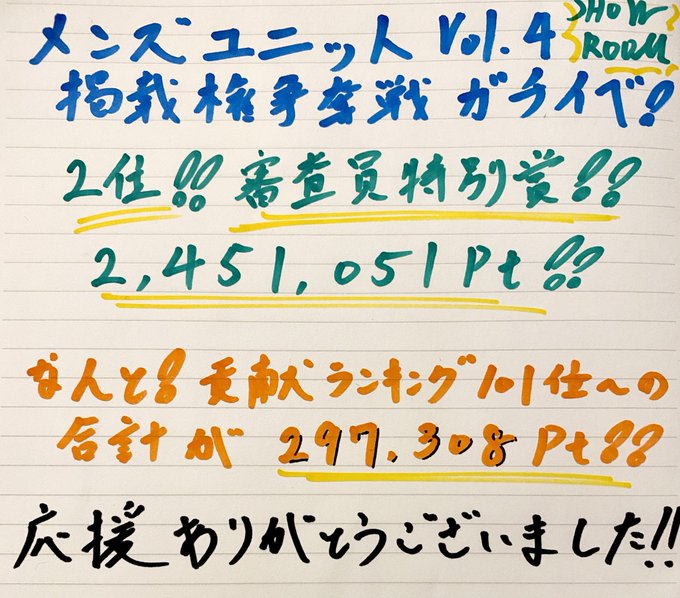 メンズユニット Vol.4 SHOW ROOM
掲載権争奪戦 ガチイベ!
2位!! 審査員特別賞!!
2,451,051Pt!!
なんと! 貢献ランキング101位〜の
合計が 297,308Pt!!
応援ありがとうございました!!